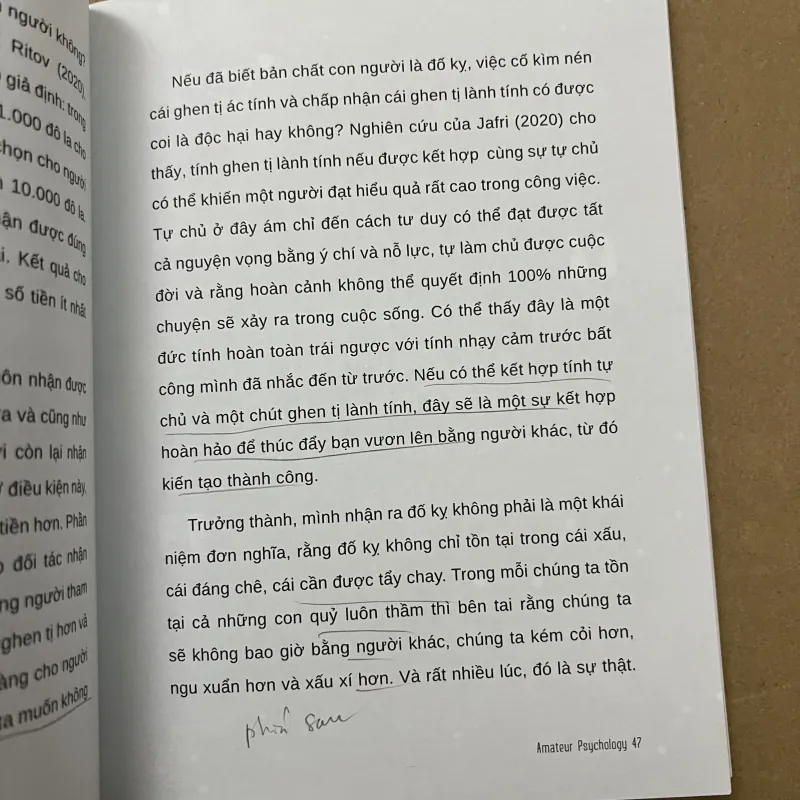 người không?
Ritov (2020),
giả định: trong
1.000 đô la cho
chọn cho người
10.000 đô la.
nhận được đúng
Kết quả cho
số tiền ít nhất
nhận được
và cũng như
còn lại nhận
điều kiện này,
tiền hơn. Phần
đối tác nhận
người tham
ghen tị hơn và
cho người
muốn không
Nếu đã biết bản chất con người là đố kỵ, việc cố kìm nén
cái ghen tị ác tính và chấp nhận cái ghen tị lành tính có được
coi là độc hại hay không? Nghiên cứu của Jafri (2020) cho
thấy, tính ghen tị lành tính nếu được kết hợp cùng sự tự chủ
có thể khiến một người đạt hiệu quả rất cao trong công việc.
Tự chủ ở đây ám chỉ đến cách tư duy có thể đạt được tất
cả nguyện vọng bằng ý chí và nỗ lực, tự làm chủ được cuộc
đời và rằng hoàn cảnh không thể quyết định 100% những
chuyện sẽ xảy ra trong cuộc sống. Có thể thấy đây là một
đức tính hoàn toàn trái ngược với tính nhạy cảm trước bất
công mình đã nhắc đến từ trước. Nếu có thể kết hợp tính tự
chủ và một chút ghen tị lành tính, đây sẽ là một sự kết hợp
hoàn hảo để thúc đẩy bạn vươn lên bằng người khác, từ đó
kiến tạo thành công.
Trưởng thành, mình nhận ra đố kỵ không phải là một khái
niệm đơn nghĩa, rằng đố kỵ không chỉ tồn tại trong cái xấu,
cái đáng chê, cái cần được tẩy chay. Trong mỗi chúng ta tồn
tại cả những con quỷ luôn thầm thì bên tai rằng chúng ta
sẽ không bao giờ bằng người khác, chúng ta kém cỏi hơn,
ngu xuẩn hơn và xấu xí hơn. Và rất nhiều lúc, đó là sự thật.
phía sau
Amateur Psychology 47